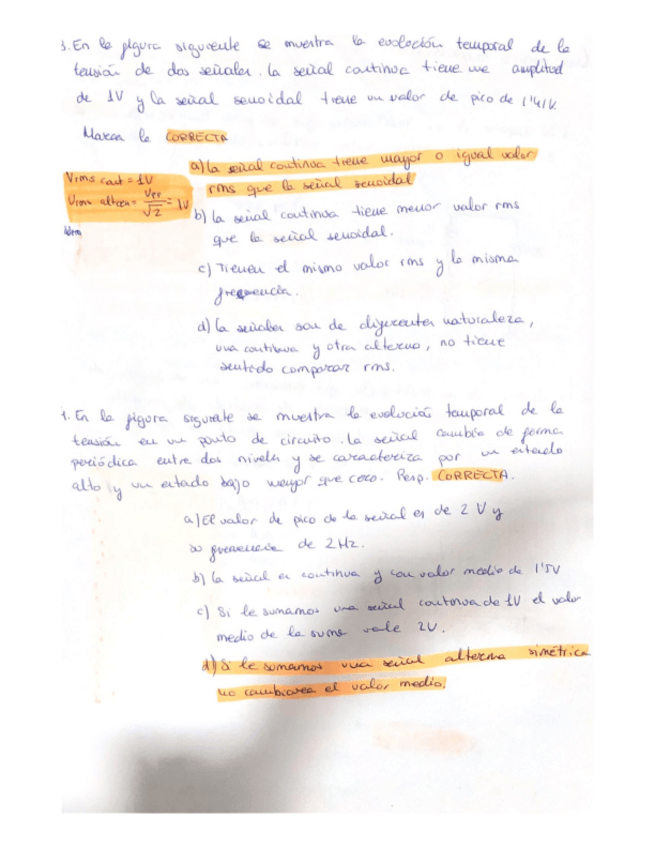 3. En la figura siguiente se muestra la evolución temporal de la
tensión de dos señales. La señal continua tiene una amplitud
de 1V y la señal senoidal tiene un valor de pico de 1'41V.
Marca la CORRECTA
a) La señal continua tiene mayor o igual valor
rms que la señal senoidal
Vrms cont = 1V
Vrms altern = Vpp/√2 = 1V
b) La señal continua tiene menor valor rms
que la señal senoidal.
c) Tienen el mismo valor rms y la misma
frecuencia.
d) La señales son de diferentes naturaleza,
una continua y otra alterna, no tiene
sentido comparar rms.
1. En la figura siguiente se muestra la evolución temporal de la
tensión en un punto de circuito. La señal cambia de forma
periódica entre dos niveles y se caracteriza por un estado
alto y un estado bajo mayor que cero. Resp. CORRECTA.
a) El valor de pico de la señal es de 2 V y
su frecuencia de 2Hz.
b) La señal es continua y con valor medio de 1'5V
c) Si le sumamos una señal continua de 1V el valor
medio de la suma vale 2V.
d) Si le sumamos una señal alterna simétrica
no cambiarea el valor medio.